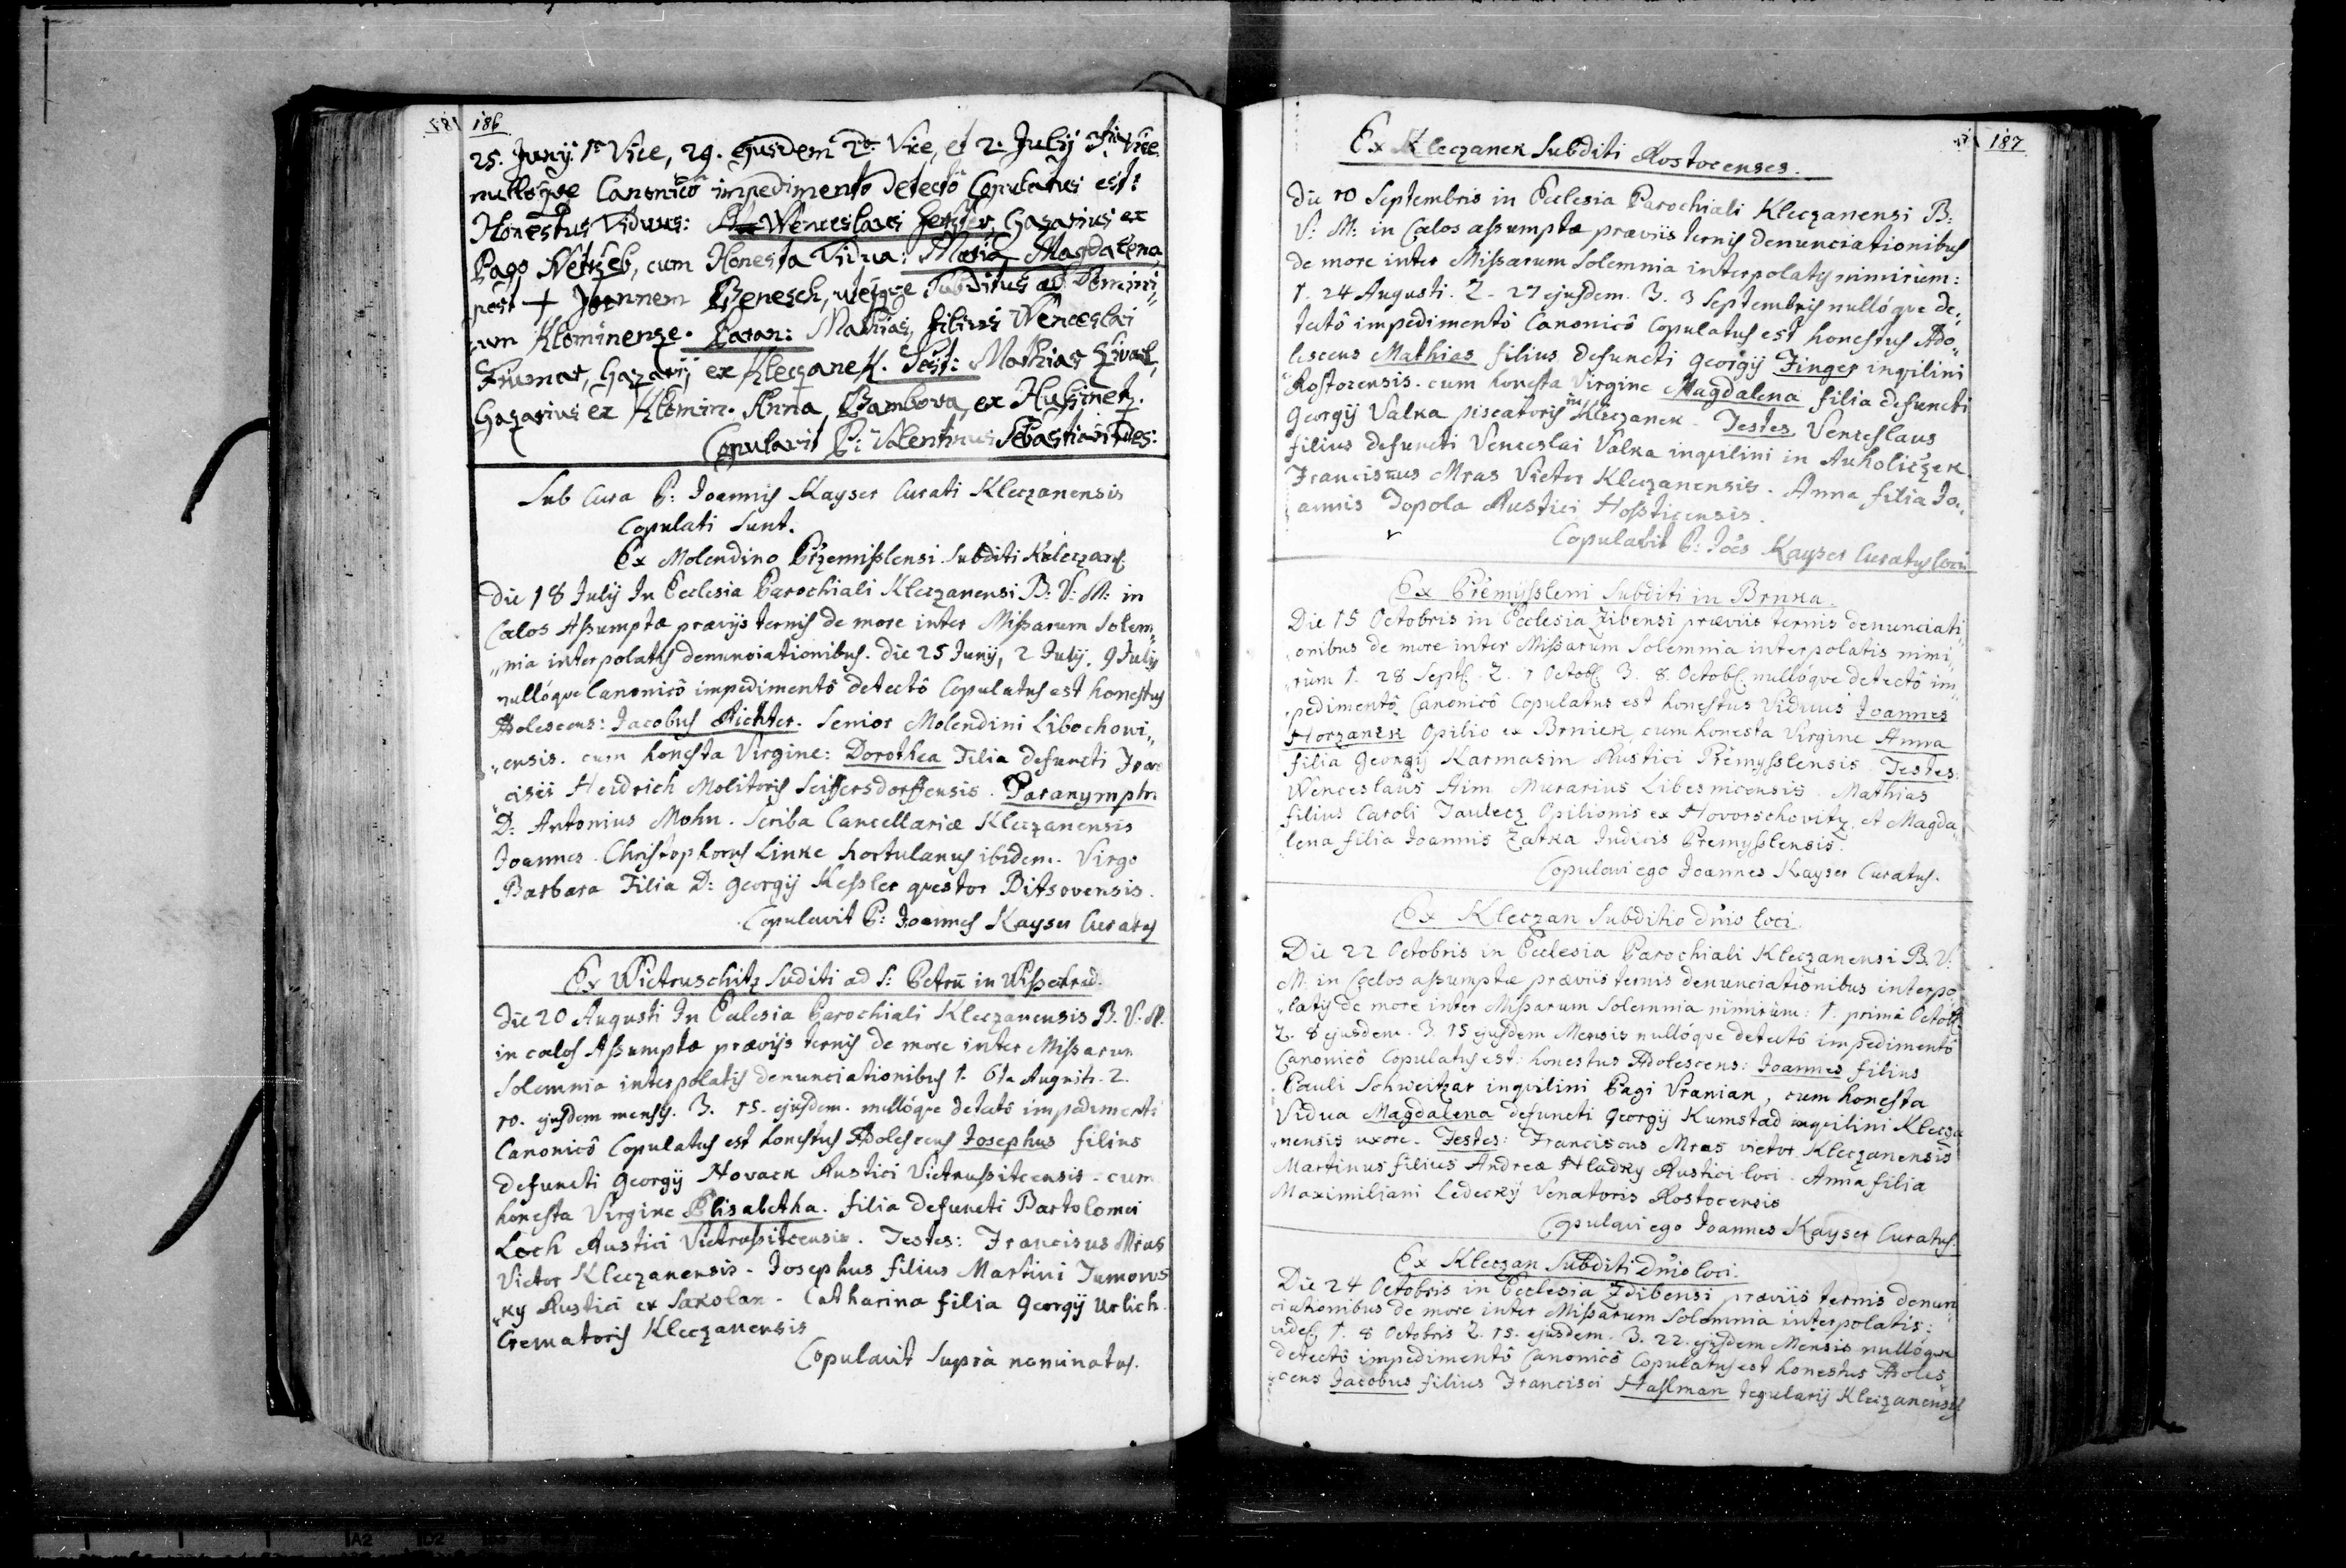 186
25. Junij 1ª Vice, 29. ejusdem 2dª Vice, et 2. Julij 3tia Vice
nullóqve Canonicô impedimentô detectô Copulatus est:
Honestus Viduus: Wenceslaus Gazarius ex
Pago Netrzeb, cum Honesta Vidua: Maria Magdalena
post + Joannem Benesch, uterqve Subditus ad Domini„
um Klominense. Paran: Mathias, filius Wenceslai
Gazarij ex Kleczanek. Test: Mathias
Gazarius ex Klomin. Anna, Bambova, ex Husinetz.
Copulavit P: Valentinus Sebastiani
Sub Cura P: Joannis Kayser Curati Kleczanensis
Copulati Sunt.
Ex Molendino Przemisslensi Subditi Kleczans.
Die 18 Julij In Ecclesia Parochiali Kleczanensi B: V: M: in
Cælos Assumptæ prævijs ternis de more inter Missarum Solem„
„nia interpolatis denunciationibus. die 25 Junij, 2 July. 9 July
nullóqve Canonicô impedimentô detectô Copulatus est honestus
Adolescens: Jacobus Richter. Senior Molendini Libochowi„
„ensis. cum honesta Virgine: Dorothea Filia defuncti Fran
„cisci Heidrich Molitoris Seiffersdorffensis. Paranymph:
D: Antonius Mohn. Scriba Cancellariæ Kleczanensis
Joannes Christophorus Linke hortulanus ibidem. Virgo
Barbara Filia D: Georgij Kessler qvestor Bitsovensis.
Copulavit P: Joannes Kayser Curatus
Ex Wietruschitz Suditi ad S: Petrū in Wissehrad.
Die 20 Augusti In Eclesia Parochiali Kleczanensis B. V. M.
in cælos Assumptæ prævijs ternis de more inter Missarum
Solemnia interpolatis denunciationibus 1. 6ta Augusti. 2.
10. ejusdem mensis. 3. 15. ejusdem. nullóqve detectô impedimentô
Canonicô Copulatus est honestus Adolescens Josephus filius
defuncti Georgij Novack Rustici Vietrussitcensis. cum
honesta Virgine Elisabetha. filia defuncti Bartolomei
Loch Rustici Vietrussitcensis. Testes: Franciscus Mras
Vietor Kleczanensis. Josephus filius Martini Tumows
„ky Rustici ex Sakolan. Catharina filia Georgij Urlich
Crematoris Kleczanensis
Copulavit Suprà nominatus.
187
Ex Kleczanek Subditi Rostocenses.
Die 10 Septembris in Ecclesia Parochiali Kleczanensi B:
V: M: in Cælos assumptæ præviis ternis denunciationibus
de more inter Missarum Solemnia interpolatis nimirùm:
1. 24 Augusti. 2. 27 ejusdem. 3. 3 Septembris nullóqve de„
tectô impedimentô Canonicô Copulatus est honestus Ado„
lescens Mathias filius defuncti Georgij Finger inqvilini
Rostocensis. cum honesta Virgine Magdalena filia defuncti
Georgij Valka piscatoris in Kleczanek. Testes Venceslaus
filius defuncti Venceslai Valka inqvilini in Auholiczek
Franciscus Mras Vietor Kleczanensis. Anna filia Jo„
annis Topola Rustici Hosticensis.
Copulavit P: Joēs Kayser Curatus loci
Ex Przemyssleni Subditi in Brnka.
Die 15 Octobris in Ecclesia Zibensi præviis ternis denunciati„
onibus de more inter Missarum Solemnia interpolatis nimi„
rùm 1. 28 Septb. 2. 1 Octob. 3. 8. Octob. nullóqve detectô im„
pedimentô Canonicô Copulatus est honestus Viduus Joannes
Horzanek Opilio ex Brniek, cum honesta Virgine Anna
filia Georgij Karmasin Rustici Przemysslensis. Testes:
Wenceslaus Aim Murarius Libesnicensis. Mathias
filius Caroli Taulecz Opilionis ex Hovorschovitz. et Magda„
lena filia Joannis Zatka Judicis Przemysslensis.
Copulavi ego Joannes Kayser Curatus.
Ex Kleczan Subditio dnio loci.
Die 22 Octobris in Ecclesia Parochiali Kleczanensi B. V.
M. in Cœlos assumptæ præviis ternis denunciationibus interpo„
„latis de more inter Missarum Solemnia nimirùm: 1. primâ Octob.
2. 8 ejusdem. 3. 15 ejusdem Mensis nullóqve detectô impedimentô
Canonicô Copulatus est: honestus Adolescens: Joannes filius
Pauli Schweitzar inqvilini Pagi Vranian, cum honesta
Vidua Magdalena defuncti Georgij Kumstad inqvilini Klecza
„nensis uxore. Testes: Franciscus Mras vietor Kleczanensis
Martinus filius Andreæ Hladky Rustici loci. Anna filia
Maximiliani Ledecky Venatoris Rostocensis
Copulavi ego Joannes Kayser Curatus.
Ex Kleczan Subditi dnio loci.
Die 24 Octobris in Ecclesia Zdibensi præviis ternis denun„
ciationibus de more inter Missarum Solemnia interpolatis:
videl. 1. 8 Octobris 2. 15. ejusdem. 3. 22. ejusdem Mensis nullóqve
detectô impedimentô Canonicô Copulatus est honestus Adoles„
„cens Jacobus filius Francisci Hasslman tegularij Kleczanensis